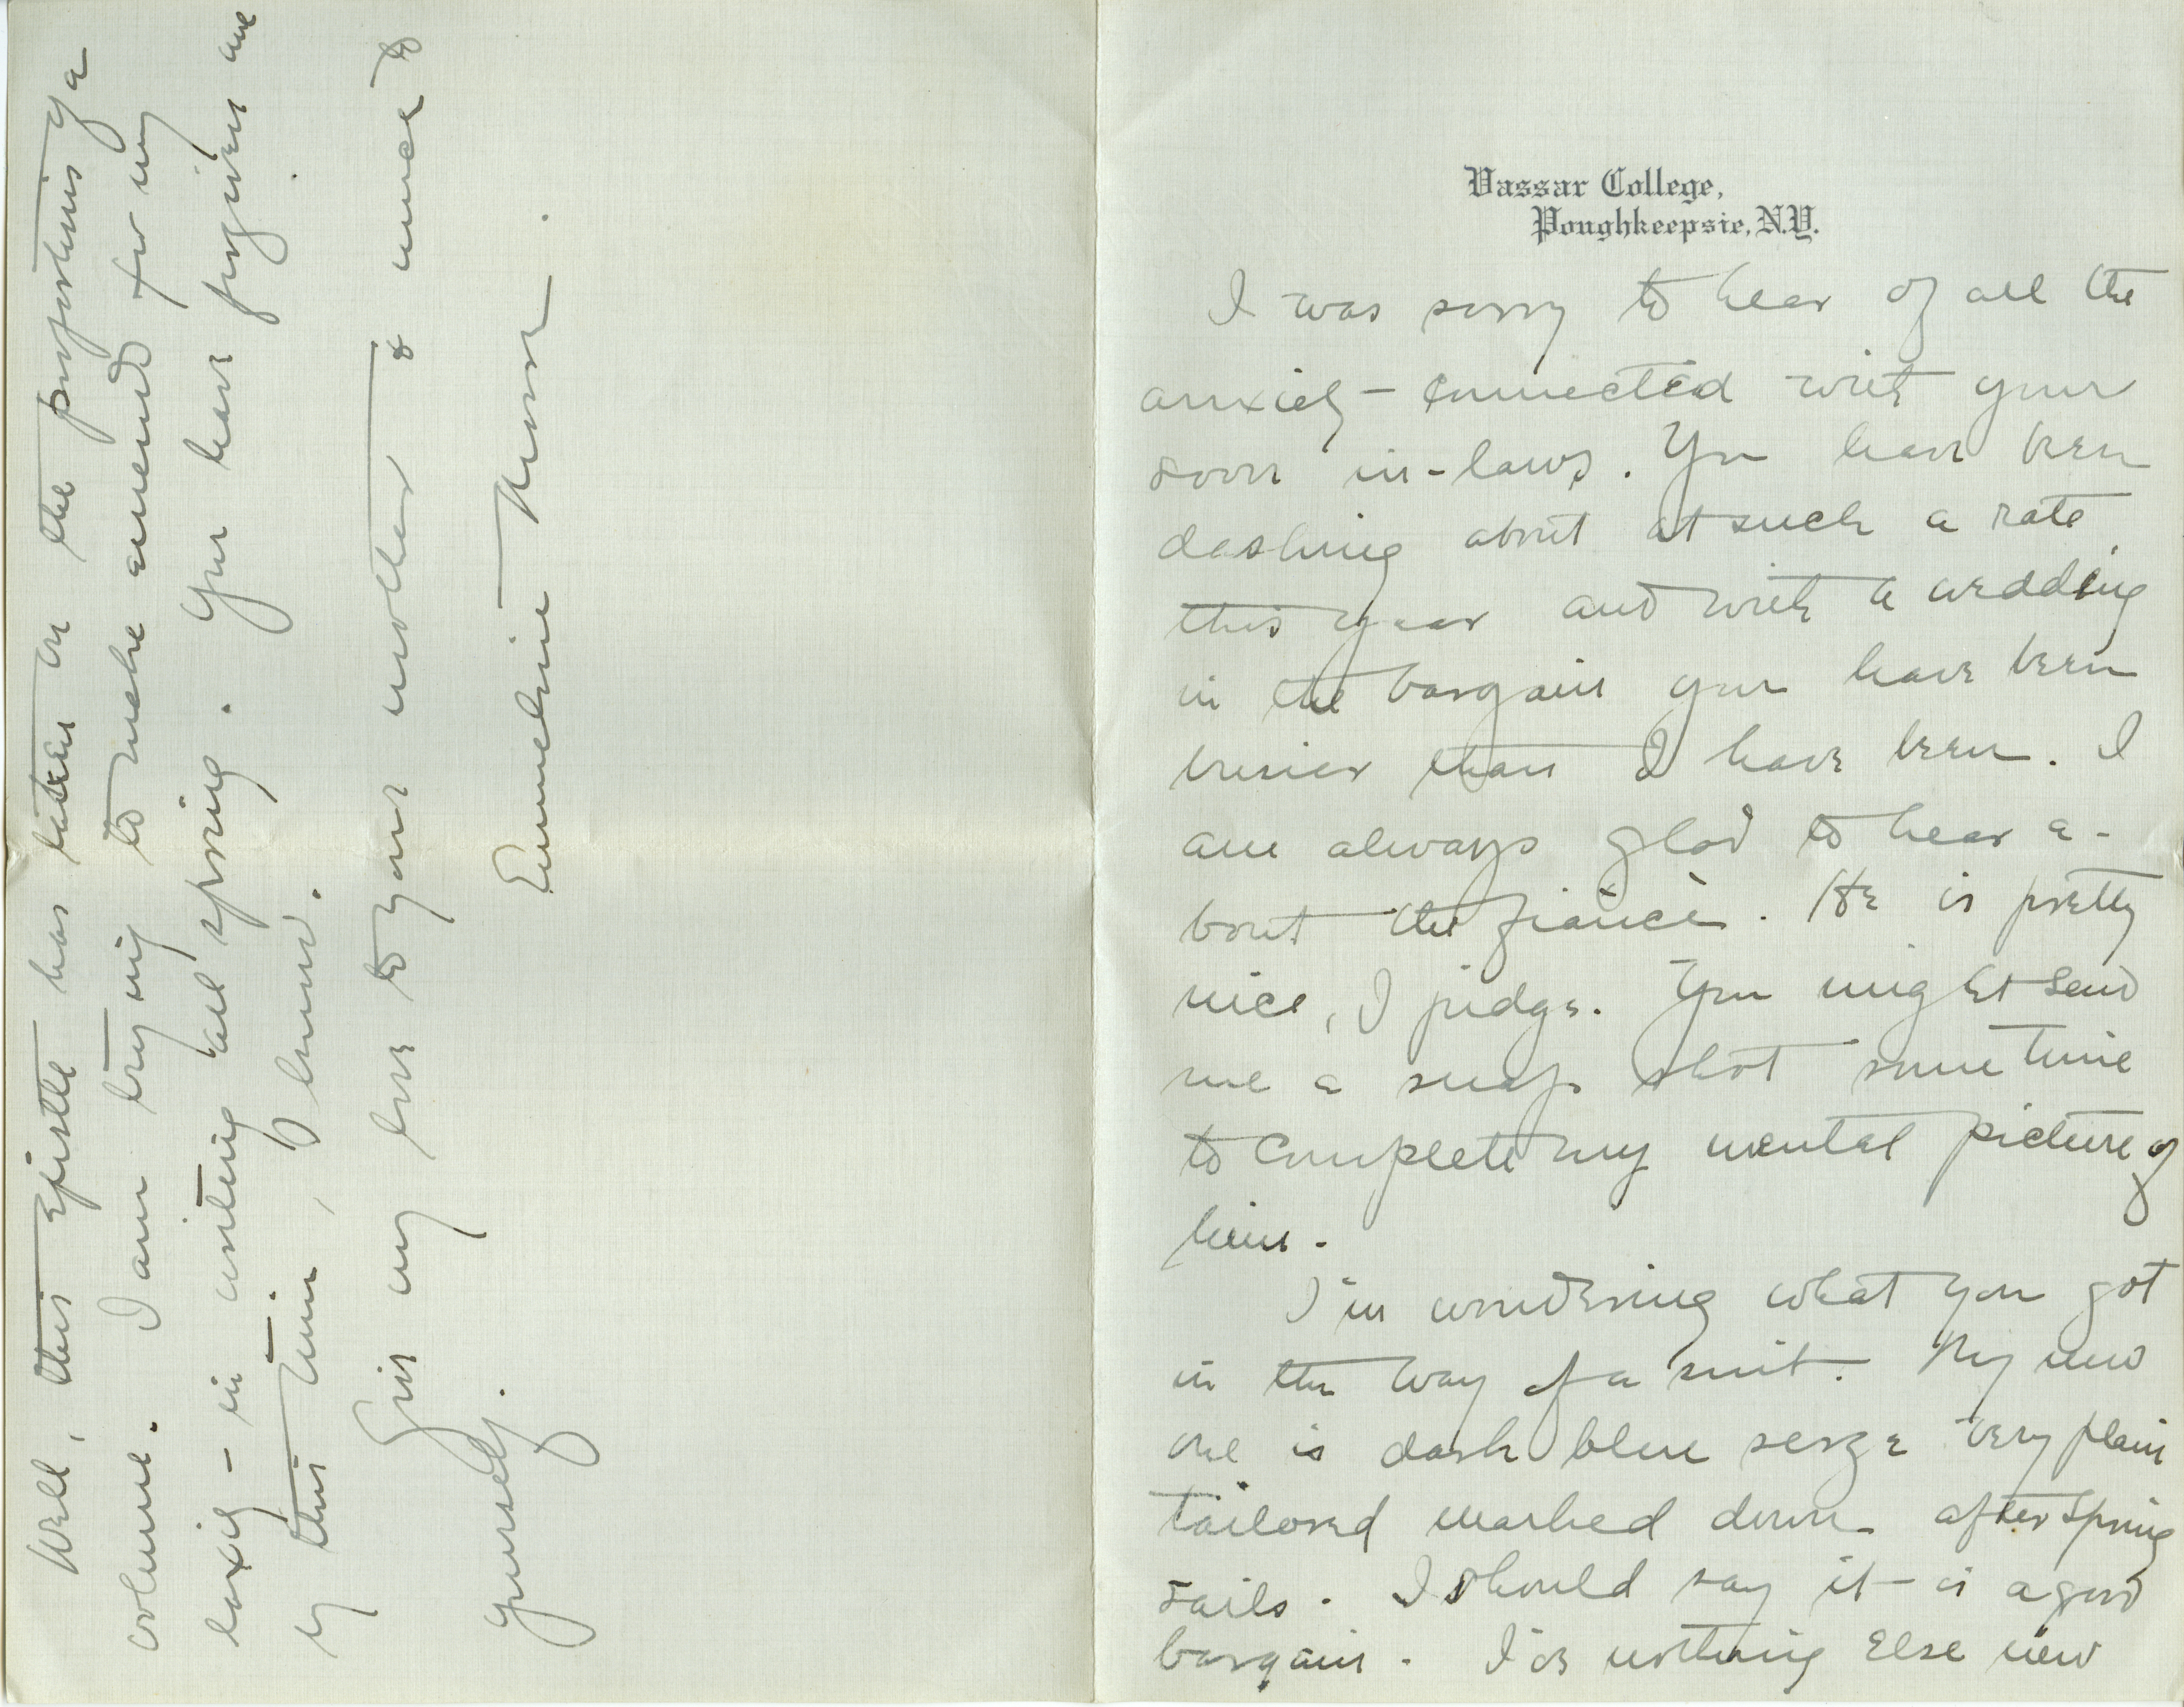 Vassar College,
Poughkeepsie, N.Y.
I was sorry to hear of all the
anxiety connected with your
soon in-laws. You have been
dashing about at such a rate
this year and with a wedding
in the bargain you have been
busier than I have been. I
am always glad to hear a-
bout the fiancè. He is pretty
nice, I judge. You might send
me a snap shot sometime
to complete my mental picture of
him.
I'm wondering what you got
in the way of a suit. My new
one is dark blue serge very plain
tailored marked down after Spring
sails. I should say it is a good
bargain. I've nothing else new
Well, this epistle has taken on the proportions of a
volume. I am trying to make amends for my
laxity in writing all spring. You have forgiven me
by this time, I know.
Give my love to your mother & much to
yourself.
Emmeline